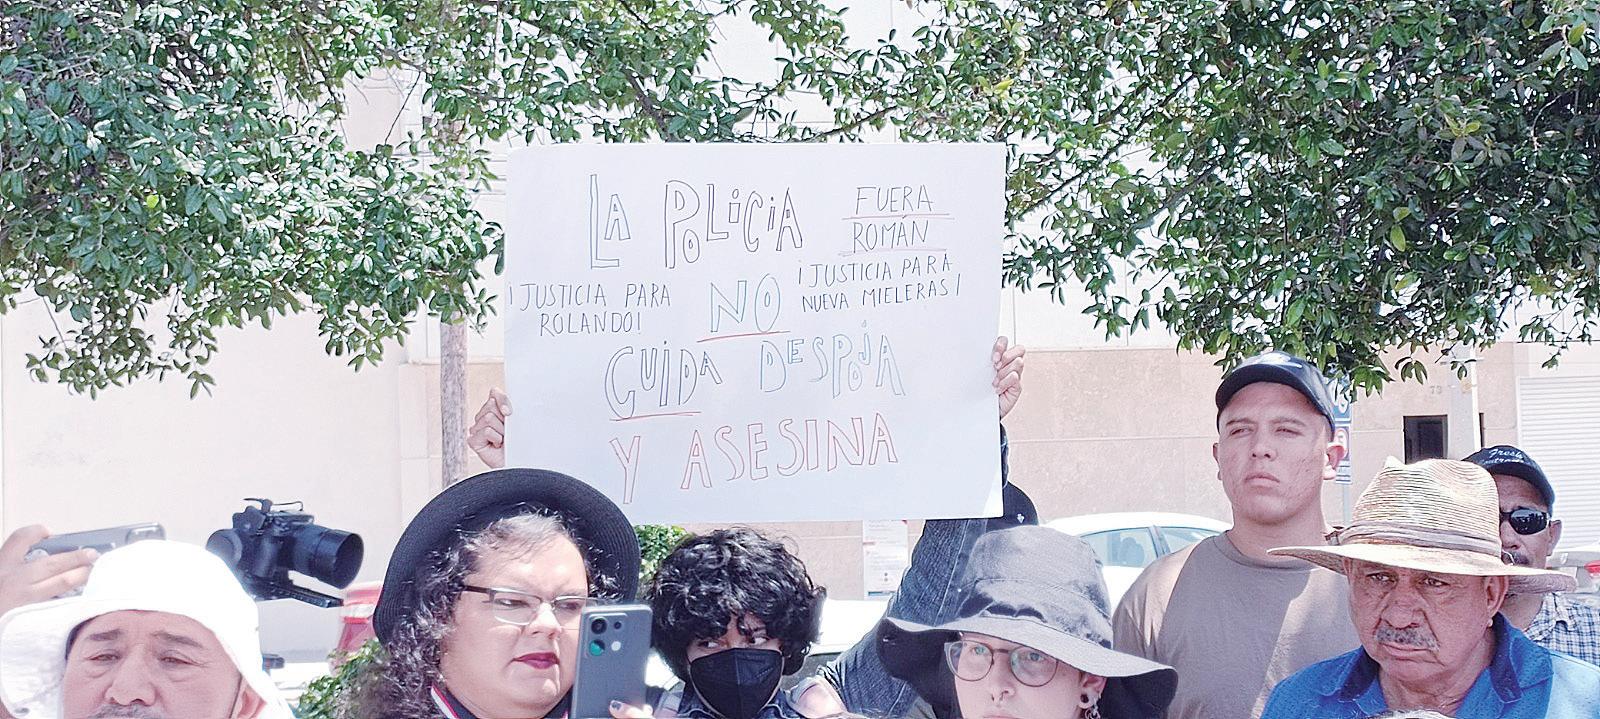 LA POLiCiA
FUERA
ROMÁN
¡JUSTICIA PARA
ROLANDO!
NO
¡JUSTICIA PARA
NUEVA MIELERAS!
CUiDA DESPOJA
Y ASESINA
Fresh